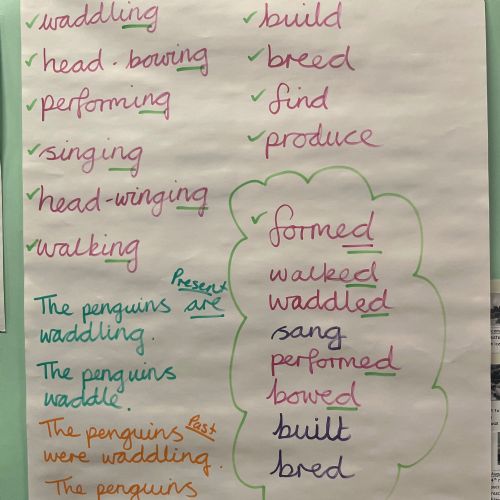 waddling
head-bowing
performing
singing
head-winging
walking
Present
The penguins are
waddling.
The penguins
waddle.
Past
The penguins
were waddling.
The penguins
build
breed
find
produce
formed
walked
waddled
sang
performed
bowed
built
bred